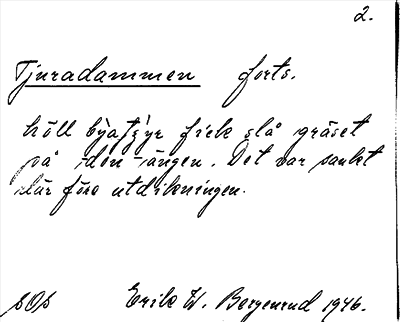 2.
Tjuradammen forts.
höll byatjyr fick slå gräset
på den ängen. Det var sankt
där före utdikningen.
SOS Erik W. Bergenrud 1946.